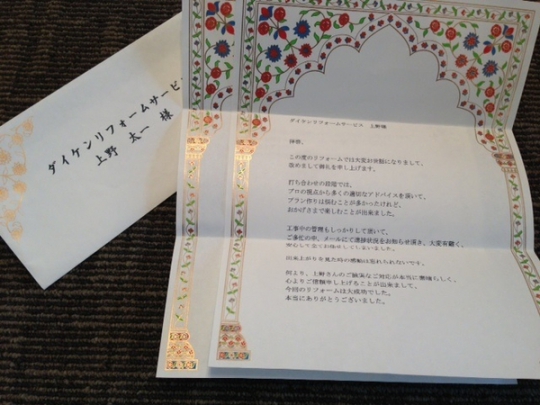 ダイケンリフォームサービス
上野 太一 様
ダイケンリフォームサービス 上野様
拝啓、
この度のリフォームでは大変お世話になりまして、
改めまして御礼を申し上げます。
打ち合わせの段階では、
プロの視点から多くの適切なアドバイスを頂いて、
プラン作りは悩むことが多かったけれど、
おかげさまで楽しむことが出来ました。
工事中の管理もしっかりして頂いて、
ご多忙の中、メールにて進捗状況をお知らせ頂き、大変有難く、
安心して全てお任せしてしまいました。
出来上がりを見た時の感動は忘れられないです。
何より、上野さんのご誠実なご対応が本当に素晴らしく、
心よりご信頼申し上げることが出来まして、
今回のリフォームは大成功でした。
本当にありがとうございました。